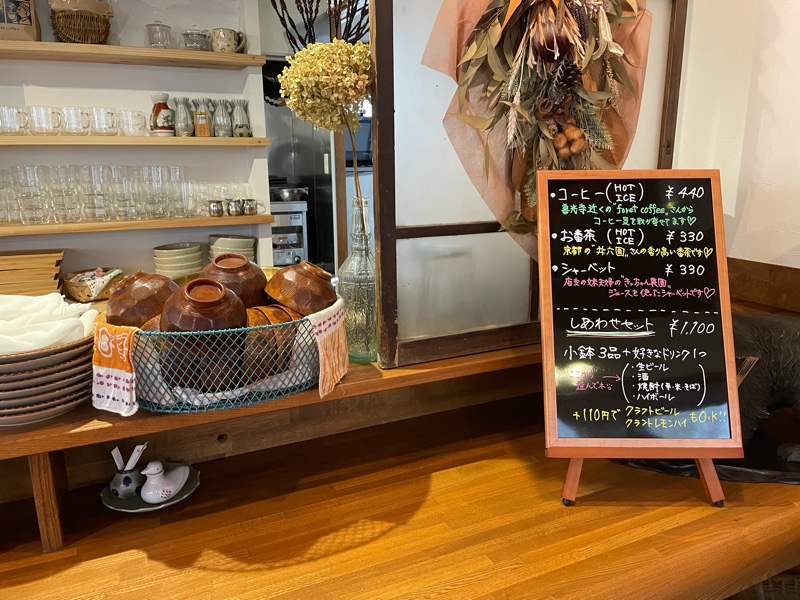 ・コーヒー(HOT ICE) ¥440
善光寺近くの"foret coffee"さんから
コーヒー豆を取り寄せてます♡
・お番茶(HOT ICE) ¥330
京都の"井六園"さんの香り高い番茶です♡
・シャーベット ¥330
店主の妹夫婦の"きっちゃん農園"
ジュースを使ったシャーベットです♡
しあわせセット ¥1,100
小鉢3品+好きなドリンク1つ
選んでネ
・生ビール
・酒
・焼酎(芋・米・そば)
・ハイボール
+110円で クラフトビール
クラフトレモンハイ もO.K!!